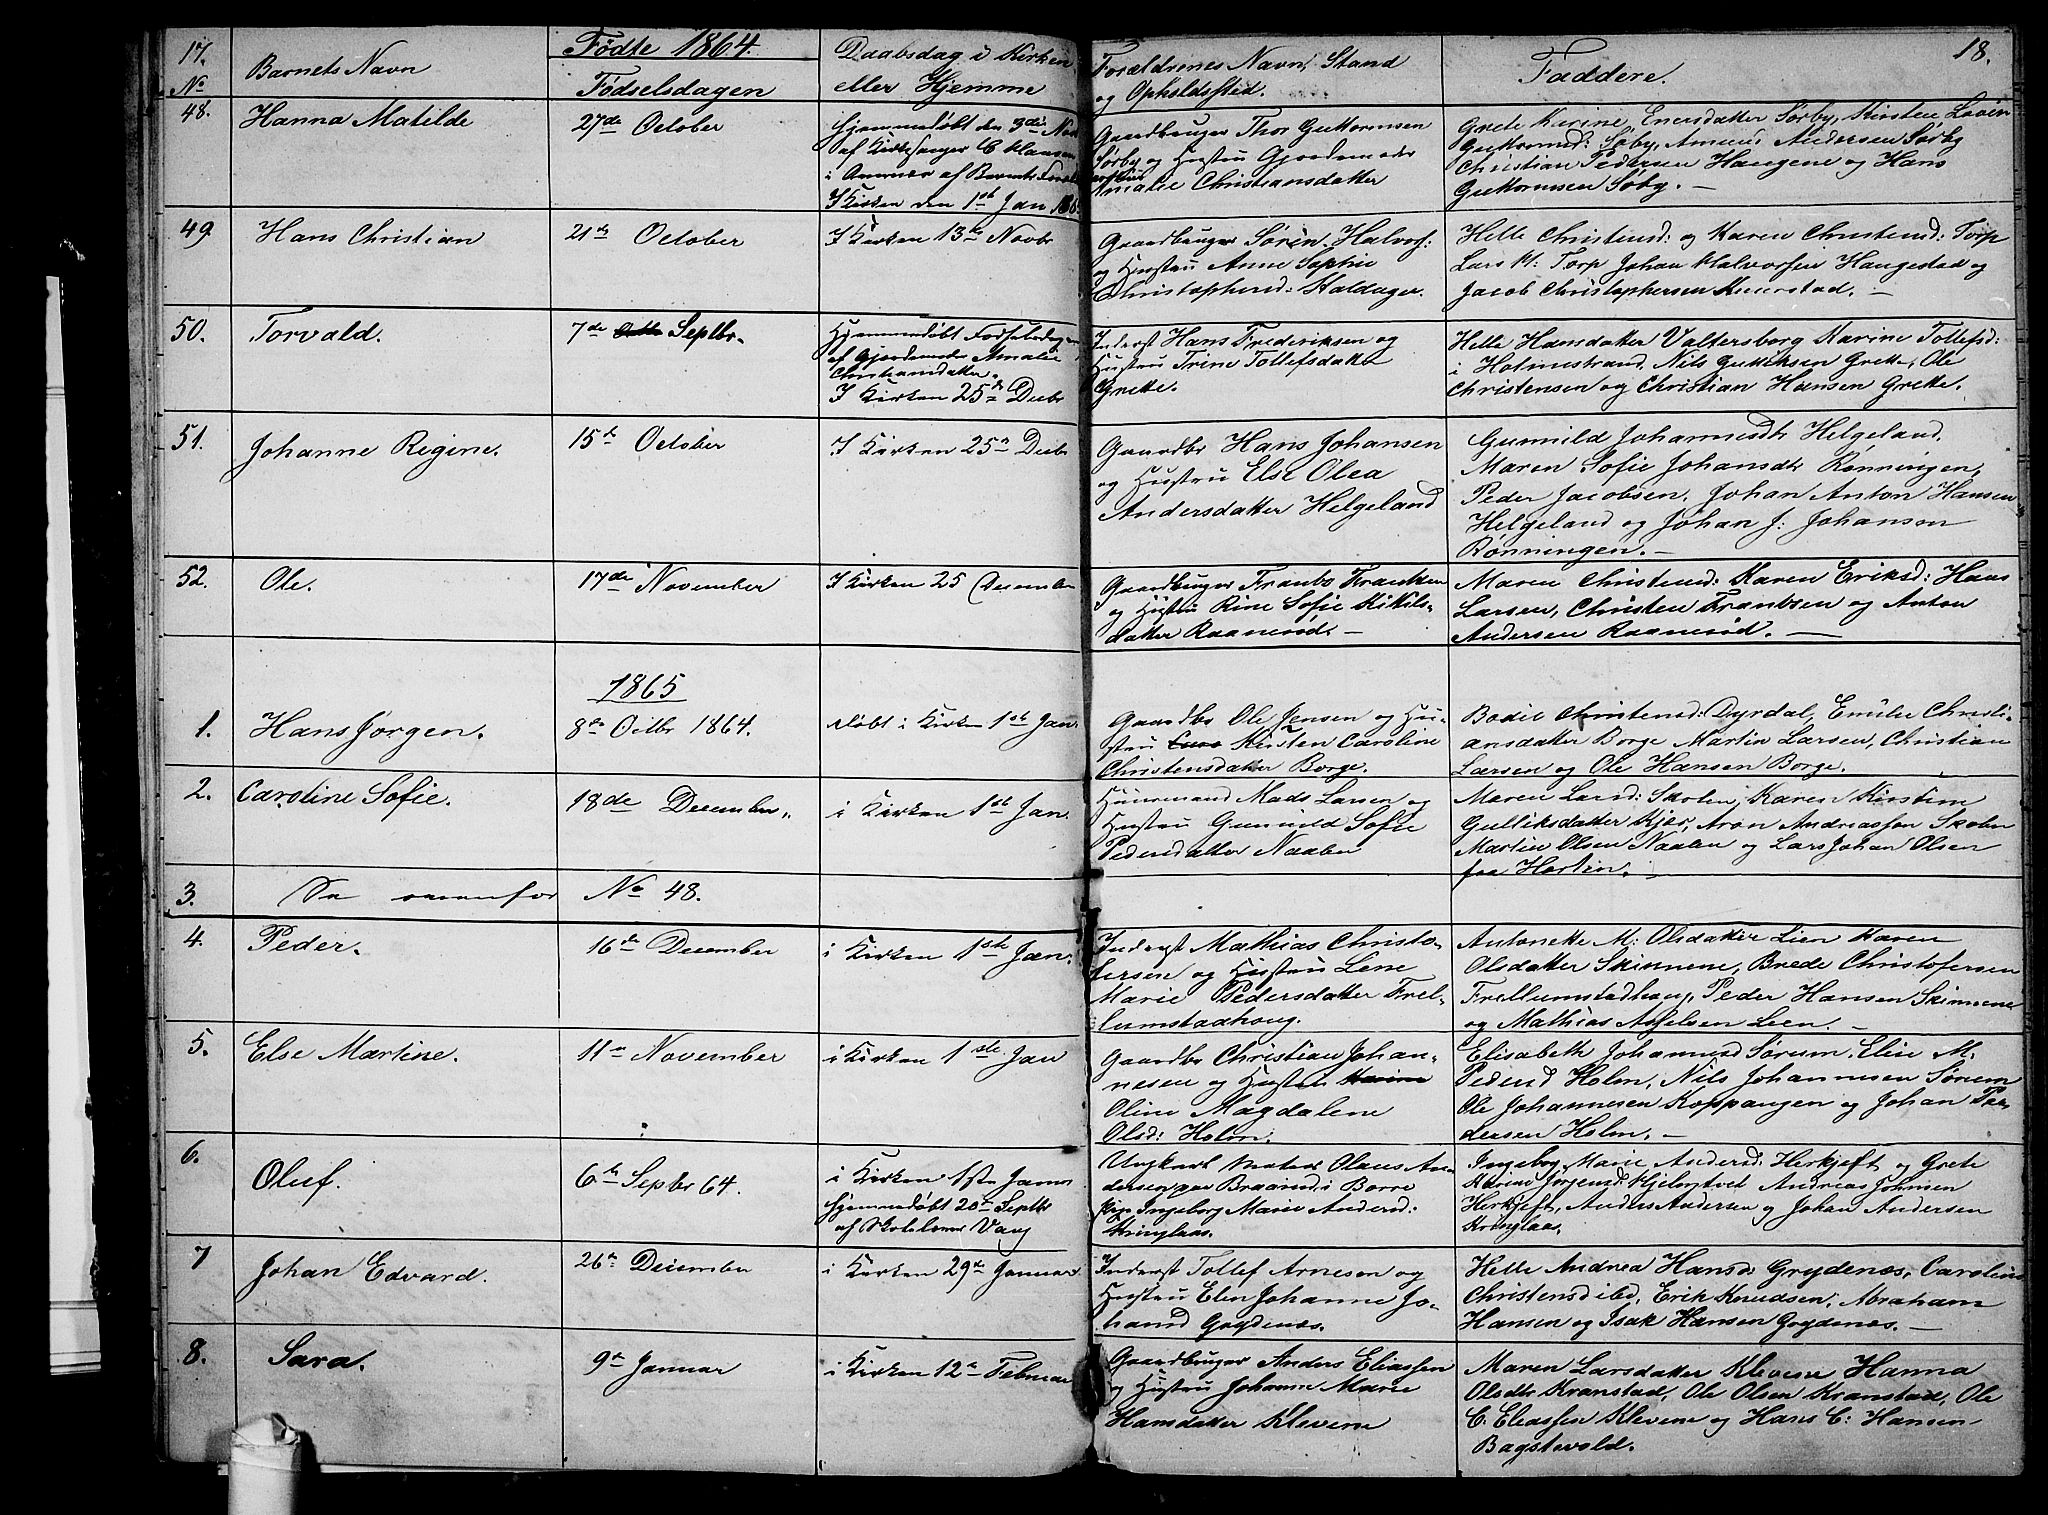 17.
No
Barnets Navn
Fødte 1864.
Fødselsdagen
Daabsdag i Kirken
eller Hjemme
Forældrenes Navn, Stand
og Opholdssted.
Faddere.
18.
48.
Hanna Matilde
27de October
Hjemmedøbt den 9de Nov
af Kirkesanger C Hansen
I Kirken den 1ste Jan
Gaardbruger Thor Guttormsen
Sørby og Hustru Gjordemoder
Amalie Christiansdatter
Grete Karine Enersdatter Sørby, Kirsten Lovise
Guttormsd: Søby, Andersen Sørby
Christian Pedersen Haugene og Hans
Guttormsen Søby. —
49.
Hans Christian
21de October
I Kirken 13de Novbr
Gaardbruger Søren Halvors:
og Hustru Anne Sophie
Christophersd: Haldager.
Helle Christensd: og Karen Christensd: Torp
Lars H: Torp Johan Halvorsen Haugestad og
Jacob Christophersen —
50.
Torvald.
7de Septbr.
Hjemmedøbt Fødselsdagen
af Gjordemoder Amalie
Christiansdatter.
I Kirken 25de Decbr
Inderst Hans Frederiksen og
Hustru Trine Tollefsdatter
Grette.
Helle Hansdatter Valtersborg Karine Tollefsd:
i Holmestrand, Nils Gulliksen Grette, Ole
Christensen og Christian Hansen Grette.
51.
Johanne Regine.
15de October
I Kirken 25de Decbr
Gaardbr Hans Johansen
og Hustru Else Olea
Andersdatter Helgeland
Gunnild Johannesdtr Helgeland.
Maren Sofie Johansdtr Rønningen,
Peder Jacobsen, Johan Anton Hansen
Helgeland og Johan J: Johansen
Rønningen. —
52.
Ole.
17de November
I Kirken 25 December
Gaardbruger Frants Frantsen
og Hustru Rine Sofie Kittils-
datter Raanerød. —
Maren Christensd: Karen Eriksd: Hans
Larsen, Christen Frantsen og Anton
Andersen Raanerød. —
1865
1.
Hans Jørgen.
8de Octbr 1864.
døbt i Kirken 1ste Jan.
Gaardbr Ole Jensen og Hu-
stru Kirsten Caroline
Christensdatter Borge.
Bodil Christensd: Dyrdal, Emilie Christi-
ansdatter Borge Martin Larsen, Christian
Larsen og Ole Hansen Borge.
2.
Caroline Sofie.
18de December.
i Kirken 1ste Jan.
Huusmand Mads Larsen og
Hustru Gunild Sofie
Pedersdatter Naalen
Maren Larsd: Skolen, Karen Kirstine
Gulliksdatter Kjær, Aron Andreassen Skolen
Martin Olsen Naalen og Lars Johan Olsen
fra Horten.
3.
Se ovenfor No 48.
4.
Peder.
16de December
i Kirken 1ste Jan.
Inderst Mathias Christo-
fersen og Hustru Lene
Marie Pedersdatter Frel-
lumstadhoug.
Antonette M: Olsdatter Lien Karen
Olsdatter Skinnene, Brede Christofersen
Frellumstadhoug, Peder Hansen Skinnene
og Mathias Axselsen Lien. —
5.
Else Martine.
11te November
i Kirken 1ste Jan
Gaardbr Christian Johan-
nesen og Hustru
Oline Magdalene
Olsd: Holm.
Elisabeth Johannesd Sørum. Elise M:
Pedersd Holm, Nils Johannesen Sørum
Ole Johannesen Koppangen og Johan Pe-
dersen Holm. —
6.
Oluf.
6te Septbr 64.
i Kirken 1ste Januar
Hjemmedøbt 20de Septbr
af Skolelærer Vaag
Ungkarl Matros Olaus An-
dersen paa i Borre
Pige Ingeborg Marie Andersd:
Kringlaas.
Ingeborg Marie Andersd: Herkjeft og Grete
Karine Jørgensd: Andreas Johnsen
Herkjeft, Anders Andersen og Johan Andersen
Kringlaas.
7
Johan Edvard.
26de December
i Kirken 29de Januar
Inderst Tollef Arnesen og
Hustru Elen Johanne Jo-
hansd Grydenæs.
Helle Andrea Hansd Grydenæs, Caroline
Christensd ibd, Erik Knudsen, Abraham
Hansen og Isak Hansen Grydenæs. —
8.
Sara.
9de Januar
i Kirken 12te Februar
Gaardbruger Anders Eliassen
og Hustru Johanne Marie
Hansdatter Klevene
Maren Larsdatter Klevene Hanna
Olsdtr Kranstad, Ole Olsen Kranstad, Ole
C. Eliassen Klevene og Hans C: Hansen
Bagstevold.